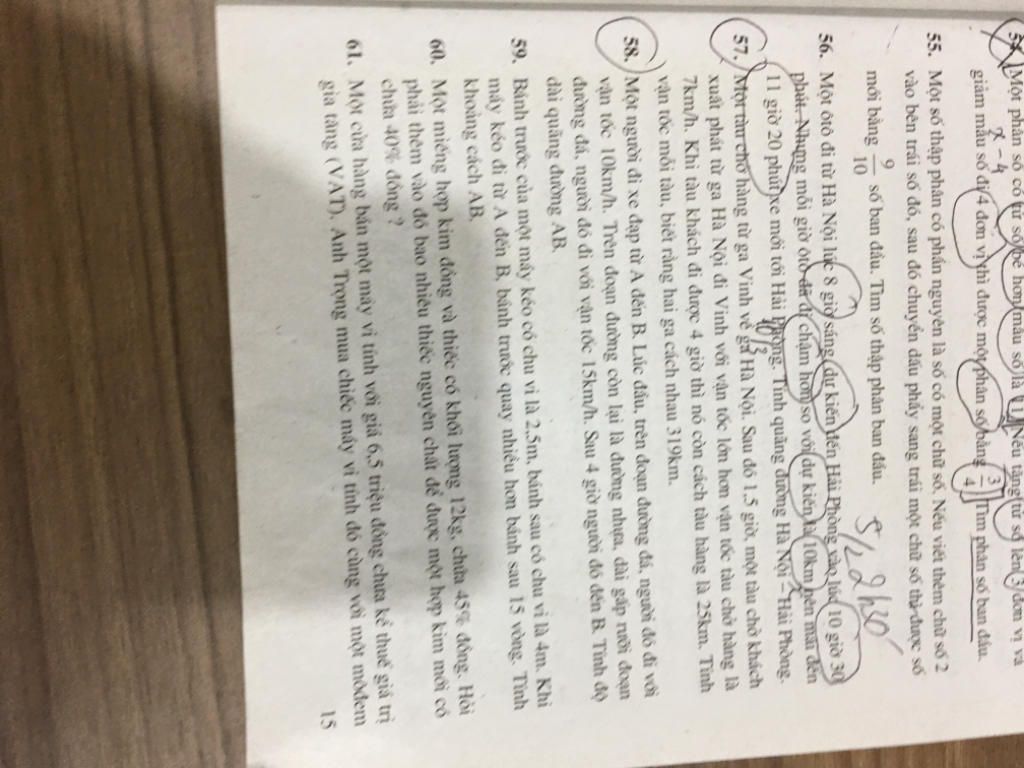 54. Một phân số có tử số bé hơn mẫu số là 11. Nếu tăng tử số lên 3 đơn vị và
x - 4
giảm mẫu số đi 4 đơn vị thì được một phân số bằng 3/4. Tìm phân số ban đầu.
55. Một số thập phân có phần nguyên là số có một chữ số. Nếu viết thêm chữ số 2
vào bên trái số đó, sau đó chuyển dấu phẩy sang trái một chữ số thì được số
mới bằng 9/10 số ban đầu. Tìm số thập phân ban đầu.
56. Một ôtô đi từ Hà Nội lúc 8 giờ sáng, dự kiến đến Hải Phòng vào lúc 10 giờ 30
phút. Nhưng mỗi giờ ôtô đã đi chậm hơn so với dự kiến là 10km nên mãi đến
11 giờ 20 phút xe mới tới Hải Phòng. Tính quãng đường Hà Nội – Hải Phòng.
57. Một tàu chở hàng từ ga Vinh về ga Hà Nội. Sau đó 1,5 giờ, một tàu chở khách
xuất phát từ ga Hà Nội đi Vinh với vận tốc lớn hơn vận tốc tàu chở hàng là
7km/h. Khi tàu khách đi được 4 giờ thì nó còn cách tàu hàng là 25km. Tính
vận tốc mỗi tàu, biết rằng hai ga cách nhau 319km.
58. Một người đi xe đạp từ A đến B. Lúc đầu, trên đoạn đường đá, người đó đi với
vận tốc 10km/h. Trên đoạn đường còn lại là đường nhựa, dài gấp rưỡi đoạn
đường đá, người đó đi với vận tốc 15km/h. Sau 4 giờ người đó đến B. Tính độ
dài quãng đường AB.
59. Bánh trước của một máy kéo có chu vi là 2,5m, bánh sau có chu vi là 4m. Khi
máy kéo đi từ A đến B, bánh trước quay nhiều hơn bánh sau 15 vòng. Tính
khoảng cách AB.
60. Một miếng hợp kim đồng và thiếc có khối lượng 12kg, chứa 45% đồng. Hỏi
phải thêm vào đó bao nhiêu thiếc nguyên chất để được một hợp kim mới có
chứa 40% đồng ?
61. Một cửa hàng bán một máy vi tính với giá 6,5 triệu đồng chưa kể thuế giá trị
gia tăng (VAT). Anh Trọng mua chiếc máy vi tính đó cùng với một môđem
15